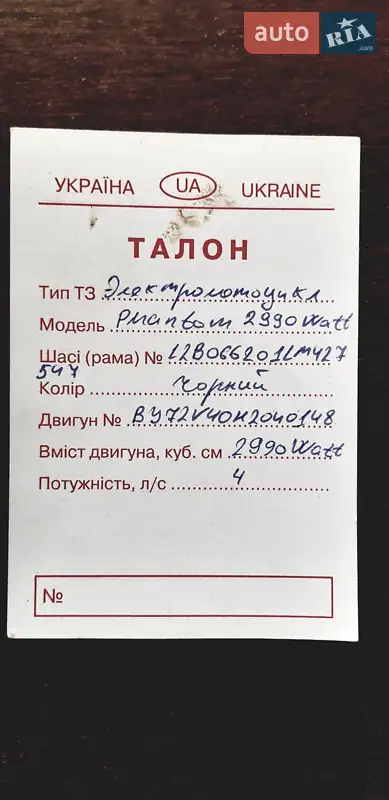 auto RIA .com
УКРАЇНА UA UKRAINE
ТАЛОН
Тип ТЗ Электромотоцикл
Модель Phantom 2990 Watt
Шасі (рама) № L2B066201LM427
547
Колір чорний
Двигун № BY72V40H2040148
Вміст двигуна, куб. см 2990 Watt
Потужність, л/с 4
№